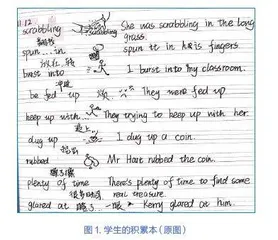 11.12
scrabbling scrabbling She was scrabbling in the long
grass.
spun...in spun it in his fingers
burst into I burst into my classroom.
冲进
be fed up They were fed up
keep up with... They trying to keep up with her
追上
dug up I dug up a coin.
挖出
rubbed Mr Hart rubbed the coin.
plenty of time There's plenty of time to find some
很多时间 real treasure.
glared at 瞪了一眼 Kerry glared at him.
图 1. 学生的积累本(原图)